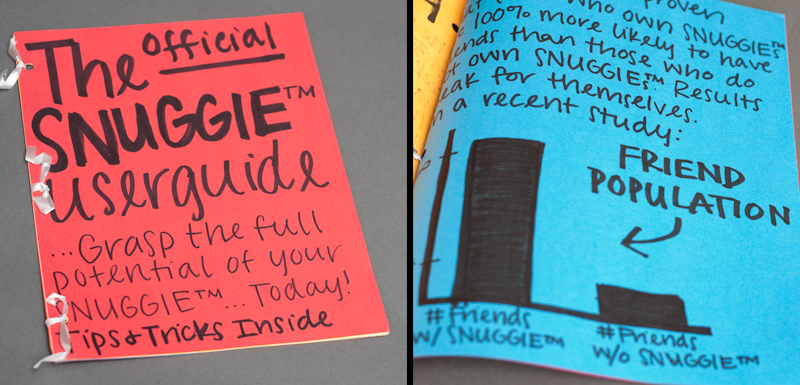 The Official
SNUGGIE™
userguide
...Grasp the full
potential of your
SNUGGIE™...Today!
Tips & Tricks Inside
proven
who own SNUGGIEs™
100% more likely to have
than those who do
own SNUGGIEs™. Results
for themselves.
a recent study:
FRIEND
POPULATION
# Friends
w/ SNUGGIE™
# Friends
w/o SNUGGIE™